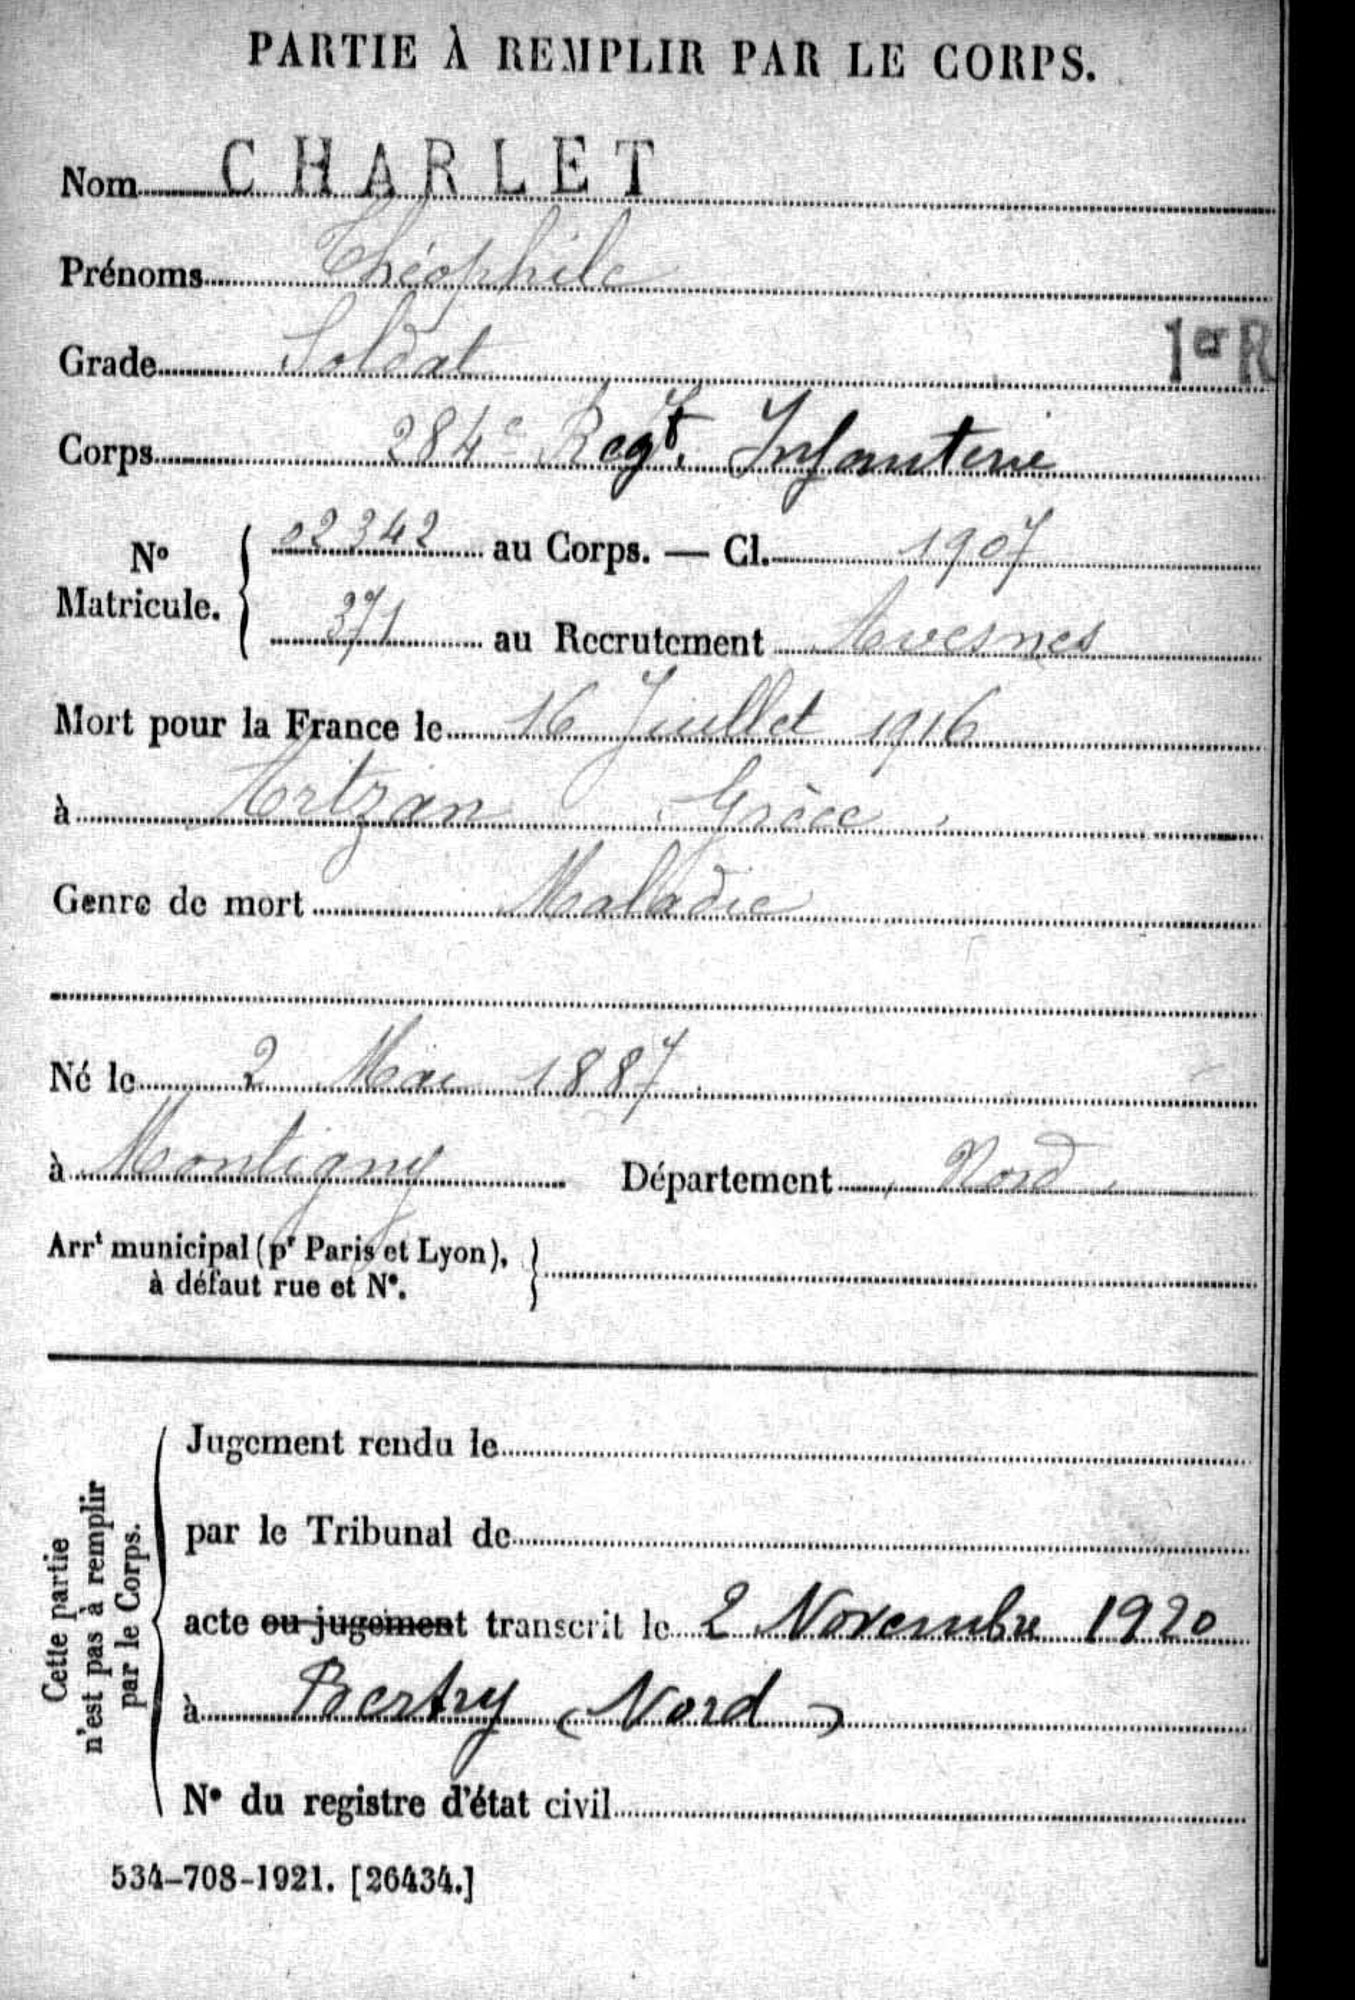 PARTIE À REMPLIR PAR LE CORPS.
Nom CHARLET
Prénoms Théophile
Grade Soldat
1er R
Corps 284e Regt. Infanterie
No Matricule. { 02342 au Corps. — Cl. 1907
371 au Recrutement Avesnes
Mort pour la France le 16 Juillet 1916
à Artzan Grèce
Genre de mort Maladie
Né le 2 Mai 1887
à Montigny Département Nord
Arrt municipal (pr Paris et Lyon), }
à défaut rue et No.
Cette partie
n'est pas à remplir
par le Corps.
Jugement rendu le
par le Tribunal de
acte ou jugement transcrit le 2 Novembre 1920
à Bertry (Nord)
No du registre d'état civil
534-708-1921. [26434.]